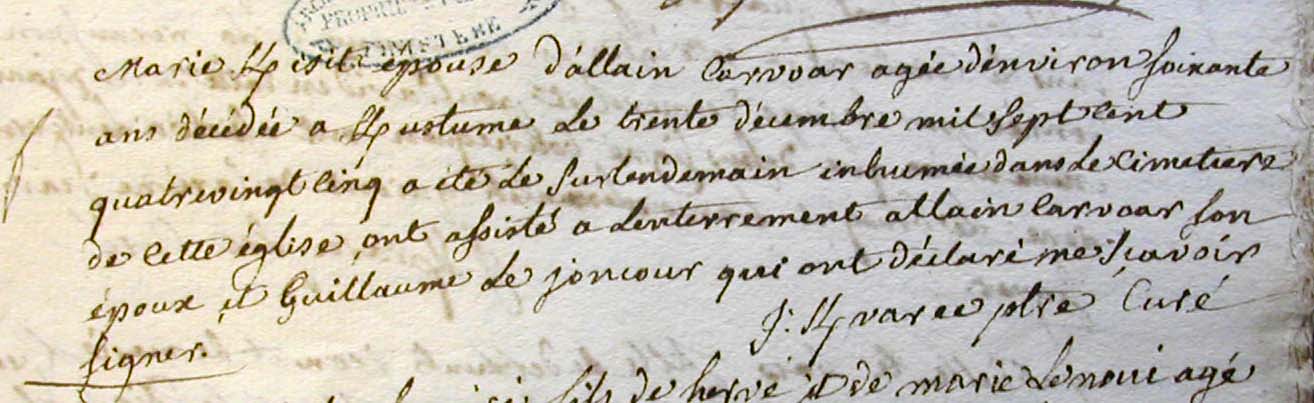 PROPRI
CIMETERE
Marie K/ isit épouse d'allain Carvoar agée d'environ soixante
ans décédée a K/ustume le trente décembre mil sept cent
quatrevingt cinq a eté le surlendemain inhumée dans le cimetiere
de cette église, ont assisté a lenterrement allain Carvoar son
époux et Guillaume le joncour qui ont déclaré ne sçavoir
signer.
J: K/varec ptre Curé
fils de hervé et de marie Lenoui agé